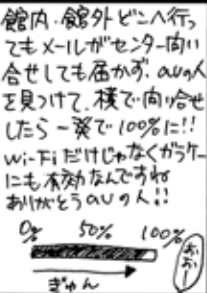 館内・館外どこへ行っ
てもメールがセンター向い
合せしても届かず、auの人
を見つけて、横で向い合せ
したら一発で100%に!!
Wi-Fiだけじゃなくガラケー
にも有効なんですね
ありがとうauの人!!
0% 50% 100%
おおー
ぎゅん